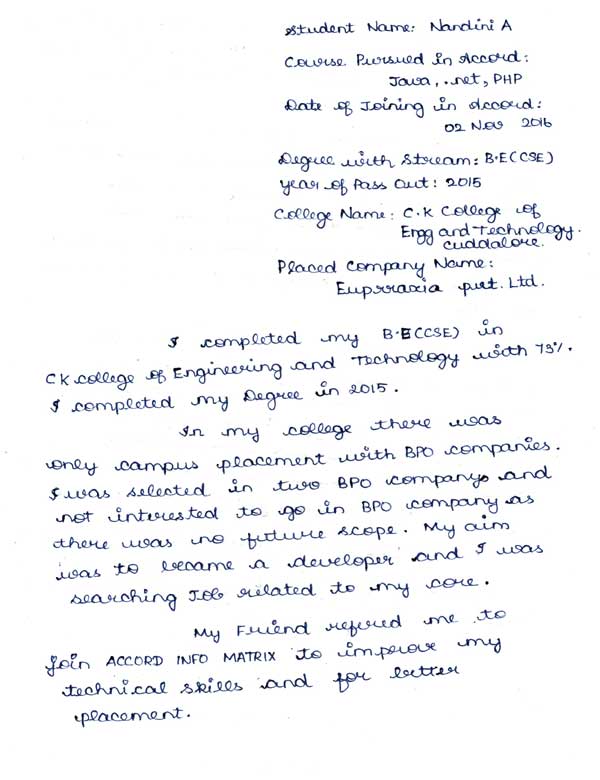 Student Name: Nandini A
Course Pursued in Accord:
Java, .net, PHP
Date of Joining in Accord:
02 Nov 2016
Degree with Stream: B.E(CSE)
year of Pass Out: 2015
College Name: C.K College of
Engg and Technology.
cuddalore.
Placed Company Name:
Euprraxia pvt. Ltd.
I completed my B.E(CSE) in
CK college of Engineering and Technology with 73%.
I completed my Degree in 2015.
In my college there was
only campus placement with BPO companies.
I was selected in two BPO companys and
not interested to go in BPO company as
there was no future scope. My aim
was to became a developer and I was
searching Job related to my core.
My Friend refered me to
Join ACCORD INFO MATRIX to improve my
technical skills and for better
placement.